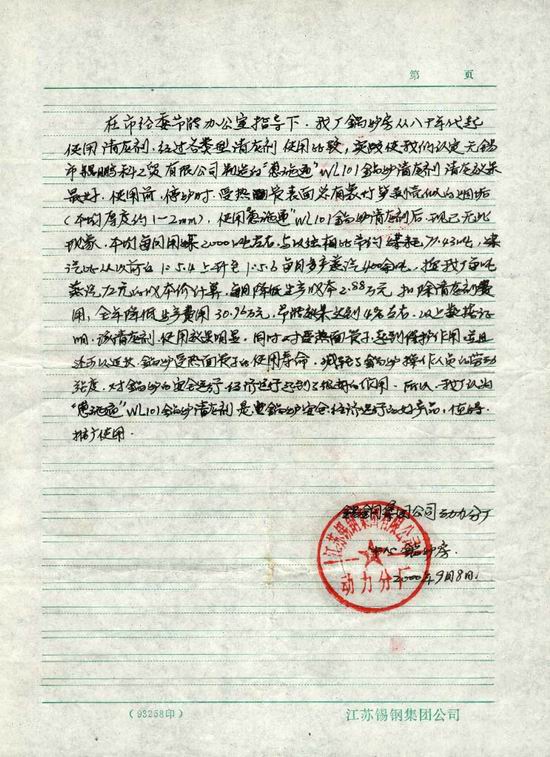 第 页
在市经委节能办公室指导下，我厂锅炉房从八十年代起
使用清灰剂，经过各类型清灰剂使用比较，实践使我们认定无锡
市 科工贸有限公司制造的"惠池通"WL101锅炉清灰剂清灰效果
最好，使用前，停炉时，受热面管表面总有
(平均厚度约1~2mm)，使用"惠池通"WL101锅炉清灰剂后，现已无此
现象，平均每月用煤2000吨左右，与以往相比节约煤耗71.43吨，煤
汽比从以前的1:5.4上升至1:5.6每月多产蒸汽400余吨，按我厂每吨
蒸汽72元的成本价计算，每月降低生产成本2.88万元，扣除清灰剂费
用，全年降低生产费用30.96万元，节能效果达到4%左右，以上数据证
明，该清灰剂使用效果明显，同时对受热面管子起到保护作用，并且
还可以延长锅炉受热面管子的使用寿命，减轻了锅炉操作人员的劳动
强度，对锅炉的安全运行，经济运行起到了很好的作用。所以，我厂认为
"惠池通"WL101锅炉清灰剂是 锅炉安全经济运行的好产品，值得
推广使用。
锡钢集团公司动力分厂
中心锅炉房
2000年9月8日
江苏锡钢集团有限公司
动力分厂
(93258印)
江苏锡钢集团公司